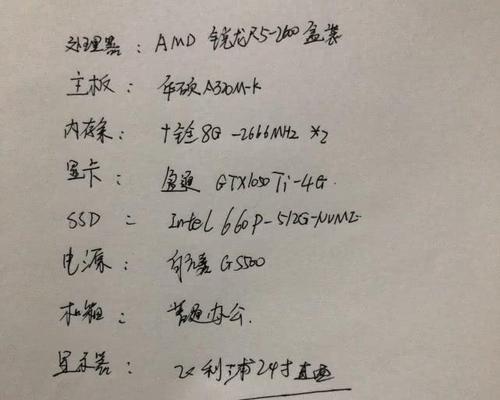 处理器：AMD 锐龙R5-2600盒装
主板：华硕A320M-K
内存条：十铨8G-2666MHz *2
显卡：盈通 GTX1050Ti-4G.
SSD：Intel 660P-512G-NVME
电源：GS500
机箱：普通办公.
显示器：飞利浦24寸直面